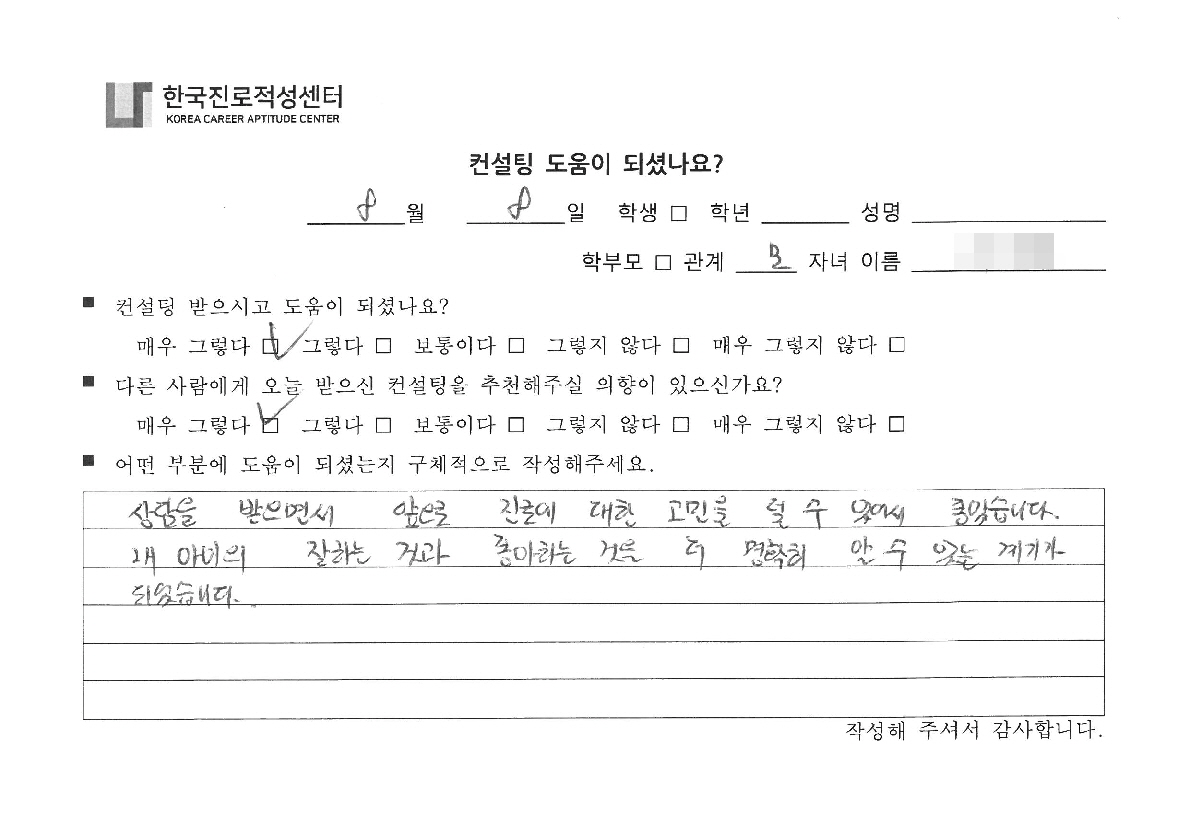 한국진로적성센터
KOREA CAREER APTITUDE CENTER
컨설팅 도움이 되셨나요?
8월 8일 학생 □ 학년 성명
학부모 □ 관계 모 자녀 이름
■ 컨설팅 받으시고 도움이 되셨나요?
매우 그렇다 ☑ 그렇다 □ 보통이다 □ 그렇지 않다 □ 매우 그렇지 않다 □
■ 다른 사람에게 오늘 받으신 컨설팅을 추천해주실 의향이 있으신가요?
매우 그렇다 ☑ 그렇다 □ 보통이다 □ 그렇지 않다 □ 매우 그렇지 않다 □
■ 어떤 부분에 도움이 되셨는지 구체적으로 작성해주세요.
상담을 받으면서 앞으로 진로에 대한 고민을 덜 수 있어서 좋았습니다.
내 아이의 잘하는 것과 좋아하는 것을 더 명확히 알 수 있는 계기가
되었습니다.
작성해 주셔서 감사합니다.